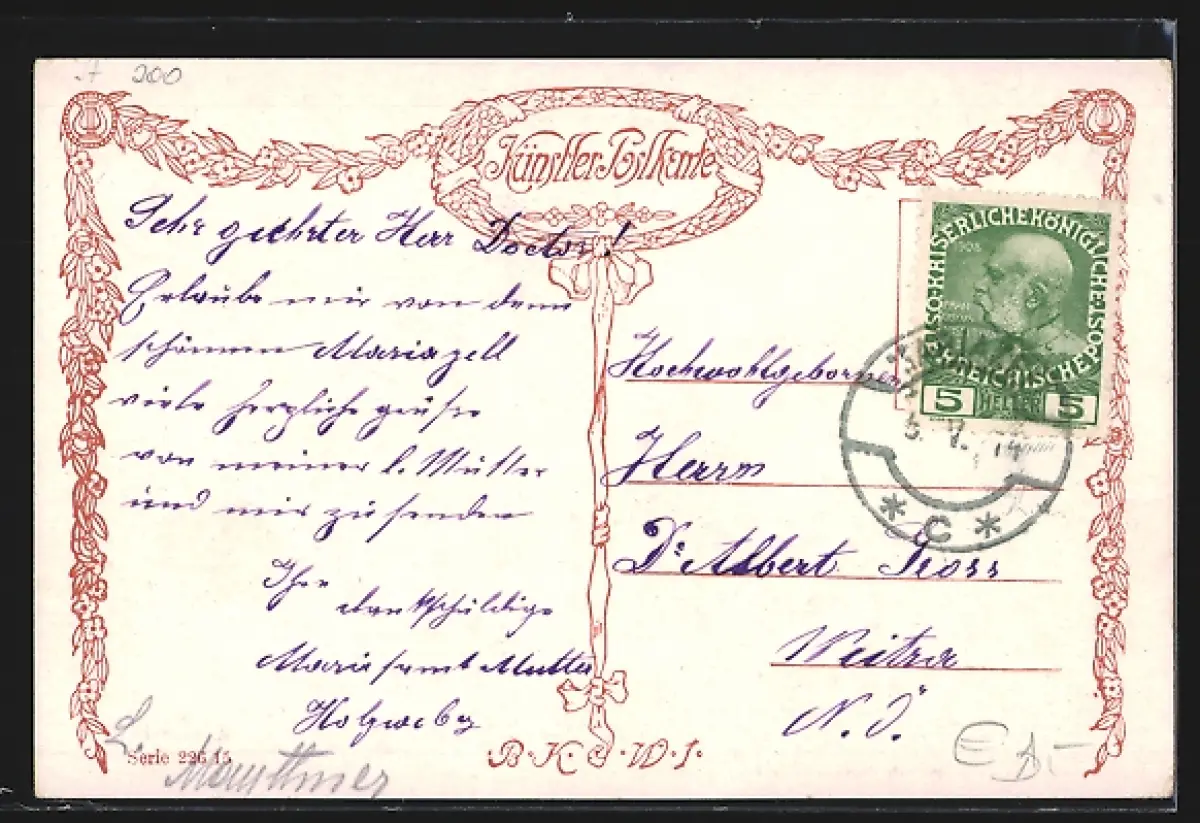 200
Künstler Postkarte
Sehr geehrter Herr Doctor!
Erlaube mir von dem
schönen Mariazell
viele herzliche grüße
von meiner l. Mutter
und mir zu senden
Ihre
dankschuldige
Maria samt Mutter
Serie 226 15
B.K.W.I.
K.K. ÖSTERREICHISCHE POST
KAISERLICHE KÖNIGLICHE
1908
5 HELLER 5
5. V. 14
* C *
Hochwohlgeboren
Herrn
Dr. Albert
Weitra
N. Ö.